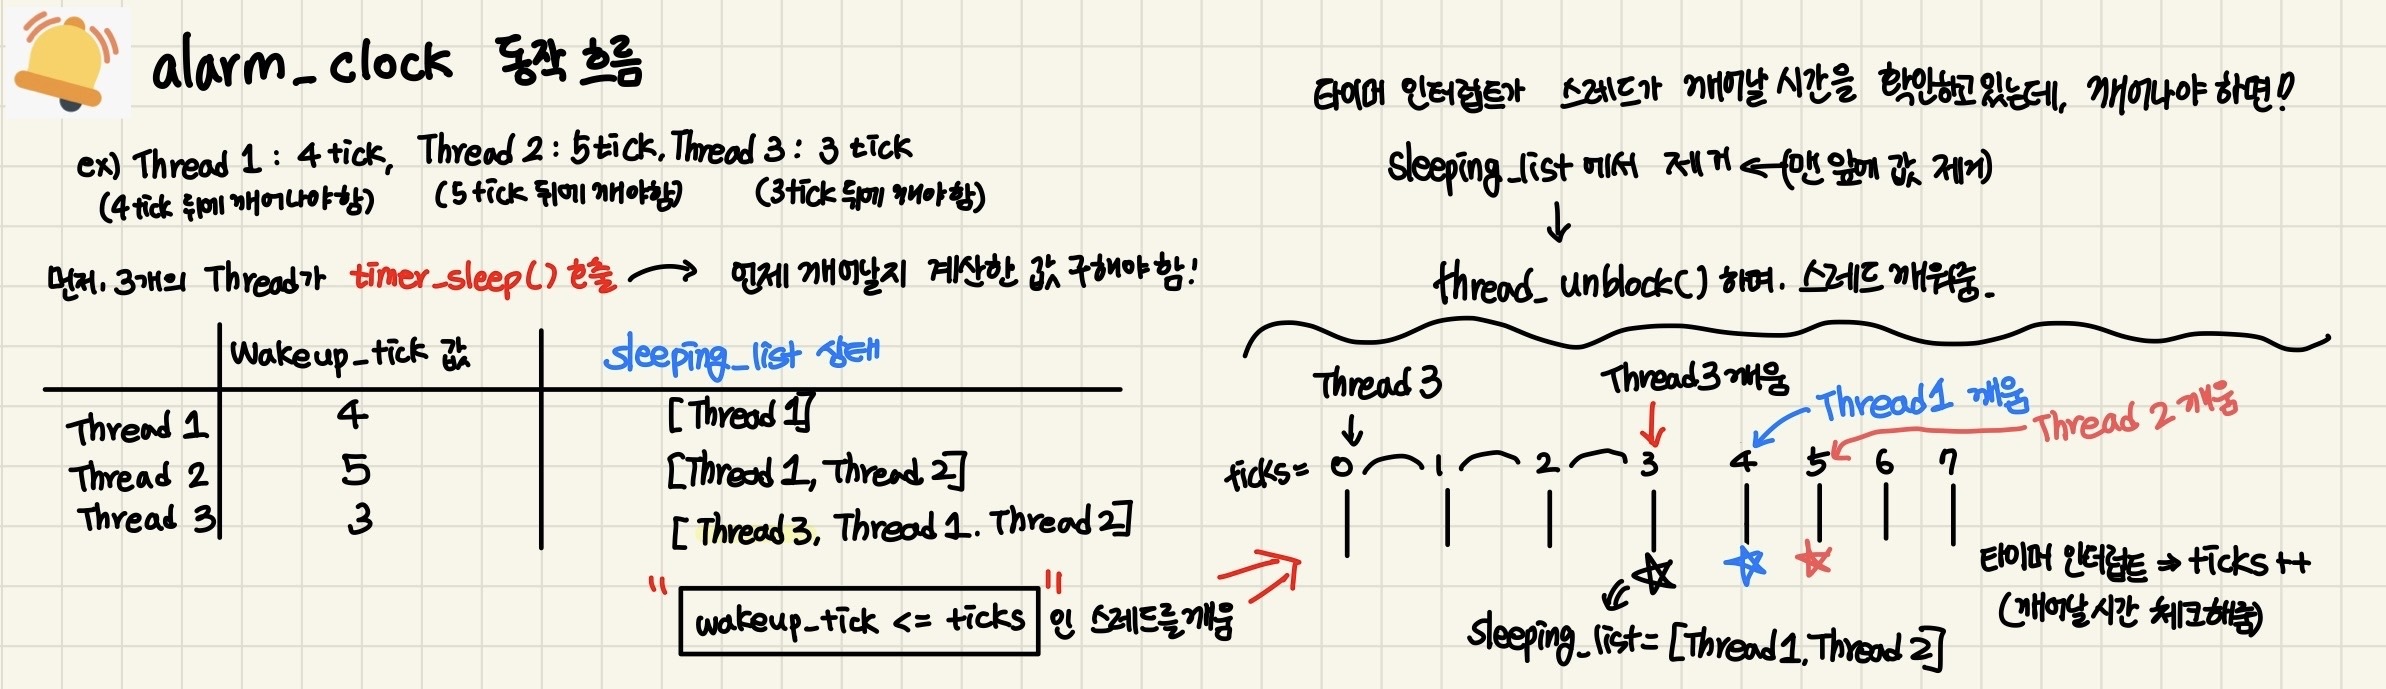 alarm_clock 동작 흐름
ex) Thread 1 : 4 tick, Thread 2 : 5 tick, Thread 3 : 3 tick
(4 tick 뒤에 깨어나야함) (5 tick 뒤에 깨야함) (3 tick 뒤에 깨야함)
먼저, 3개의 Thread가 timer_sleep() 호출 → 언제 깨어날지 계산한 값 구해야 함!
wakeup_tick 값 sleeping_list 상태
Thread 1 4 [Thread 1]
Thread 2 5 [Thread 1, Thread 2]
Thread 3 3 [Thread 3, Thread 1. Thread 2]
" wakeup_tick <= ticks " 인 스레드를 깨움
타이머 인터럽트가 스레드가 깨어날 시간을 확인하고 있는데, 깨어나야 하면!
sleeping_list 에서 제거 ← (맨 앞에 값 제거)
↓
thread_unblock() 하며. 스레드 깨워줌.
Thread 3 Thread3 깨움 Thread 1 깨움 Thread 2 깨움
ticks = 0 1 2 3 4 5 6 7
타이머 인터럽트 ⇒ ticks ++
(깨어날 시간 체크해줌)
sleeping_list = [Thread 1, Thread 2]